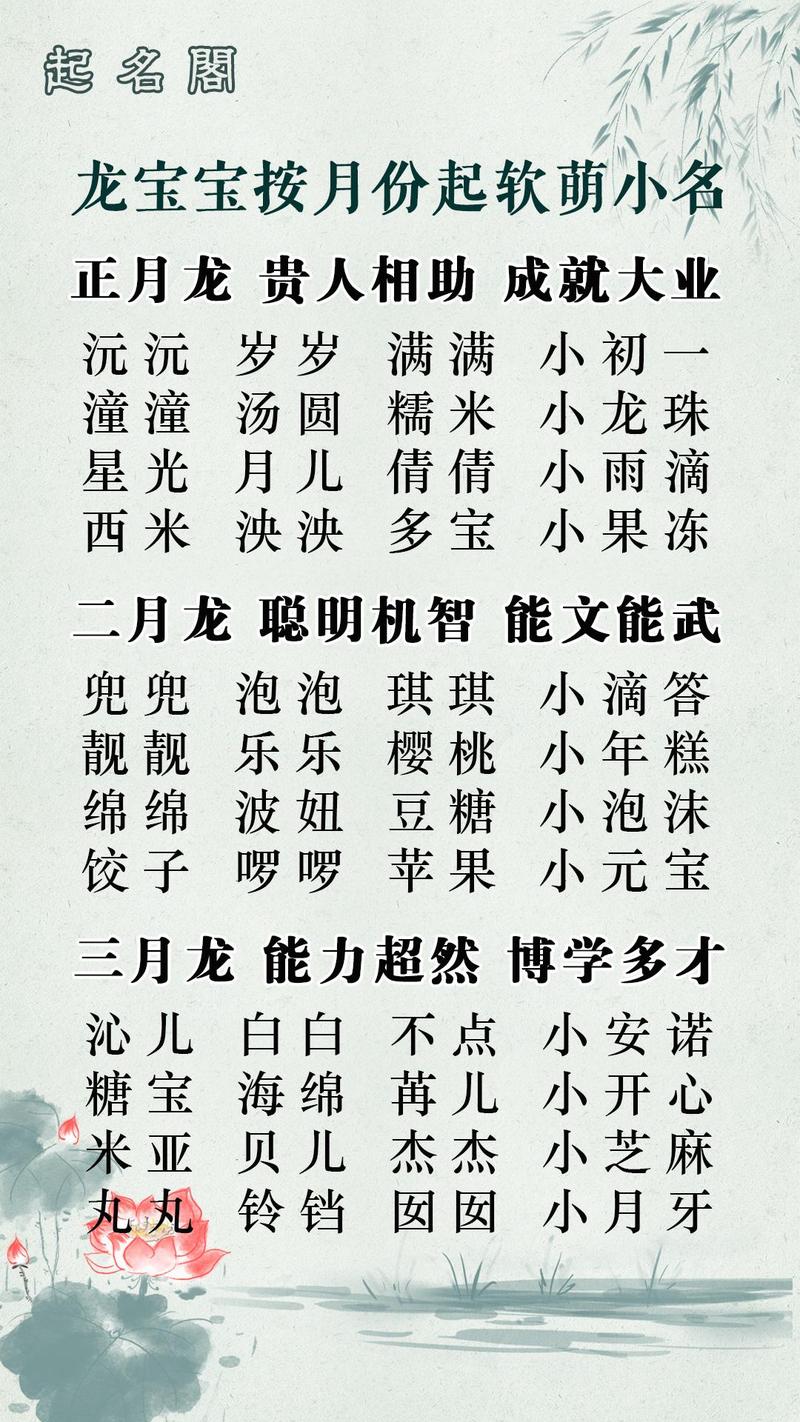 起名閣
龙宝宝按月份起软萌小名
正月龙 贵人相助 成就大业
沅沅 岁岁 满满 小初一
潼潼 汤圆 糯米 小龙珠
星光 月儿 倩倩 小雨滴
西米 泱泱 多宝 小果冻
二月龙 聪明机智 能文能武
兜兜 泡泡 琪琪 小滴答
靓靓 乐乐 樱桃 小年糕
绵绵 波妞 豆糖 小泡沫
饺子 啰啰 苹果 小元宝
三月龙 能力超然 博学多才
沁儿 白白 不点 小安诺
糖宝 海绵 苒儿 小开心
米亚 贝儿 杰杰 小芝麻
丸丸 铃铛 囡囡 小月牙